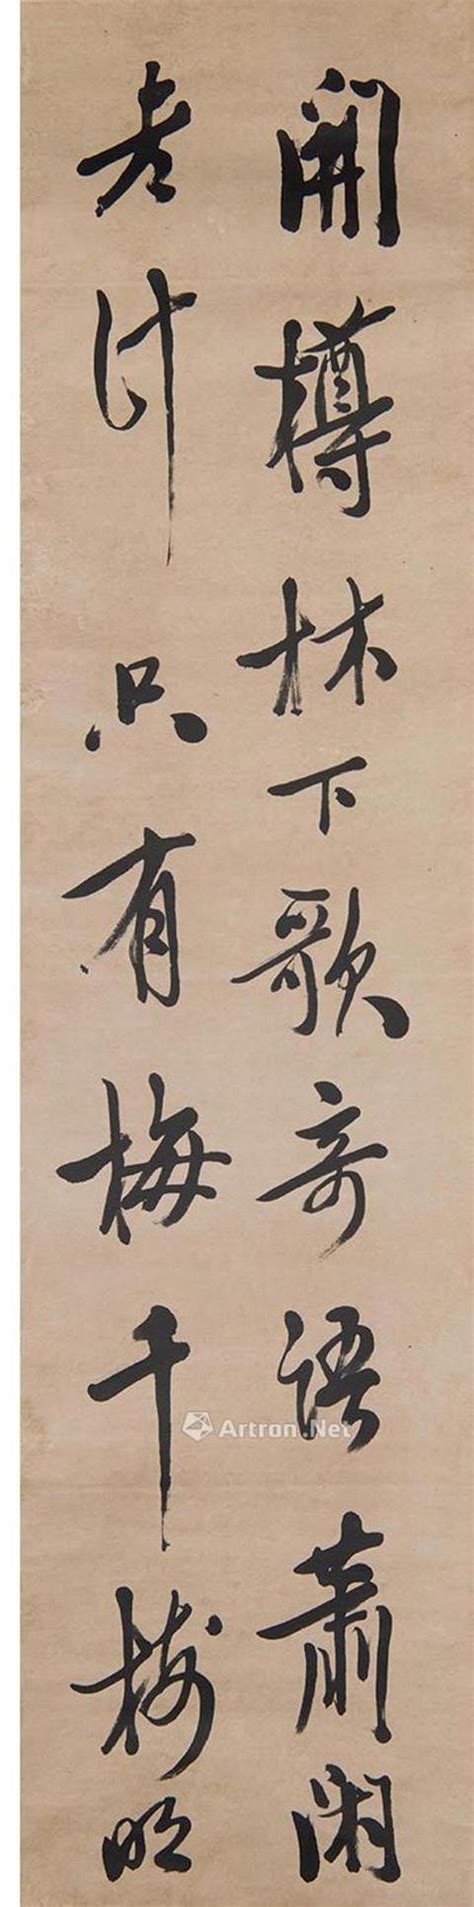 開樽林下歌奇語蕭閑
老計只有梅千樹明
Artron.Net